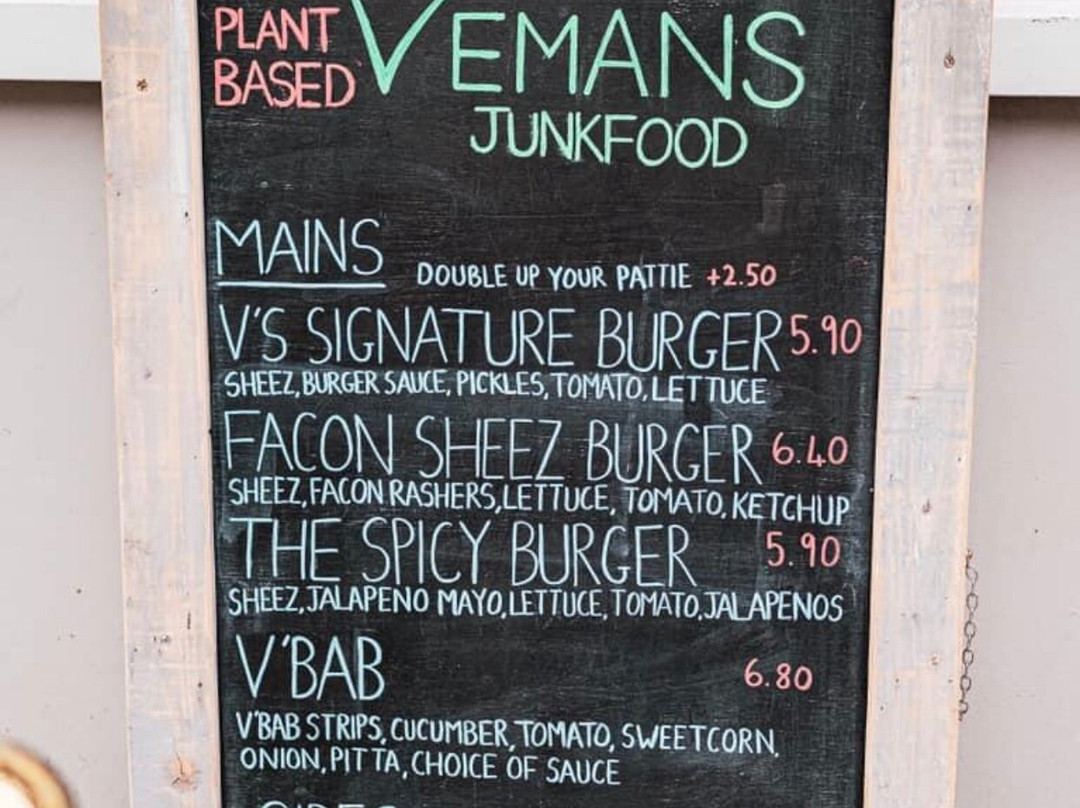 PLANT BASED VEMANS
JUNKFOOD
MAINS DOUBLE UP YOUR PATTIE +2.50
V'S SIGNATURE BURGER 5.90
SHEEZ, BURGER SAUCE, PICKLES, TOMATO, LETTUCE
FACON SHEEZ BURGER 6.40
SHEEZ, FACON RASHERS, LETTUCE, TOMATO, KETCHUP
THE SPICY BURGER 5.90
SHEEZ, JALAPENO MAYO, LETTUCE, TOMATO, JALAPENOS
V'BAB 6.80
V'BAB STRIPS, CUCUMBER, TOMATO, SWEETCORN,
ONION, PITTA, CHOICE OF SAUCE